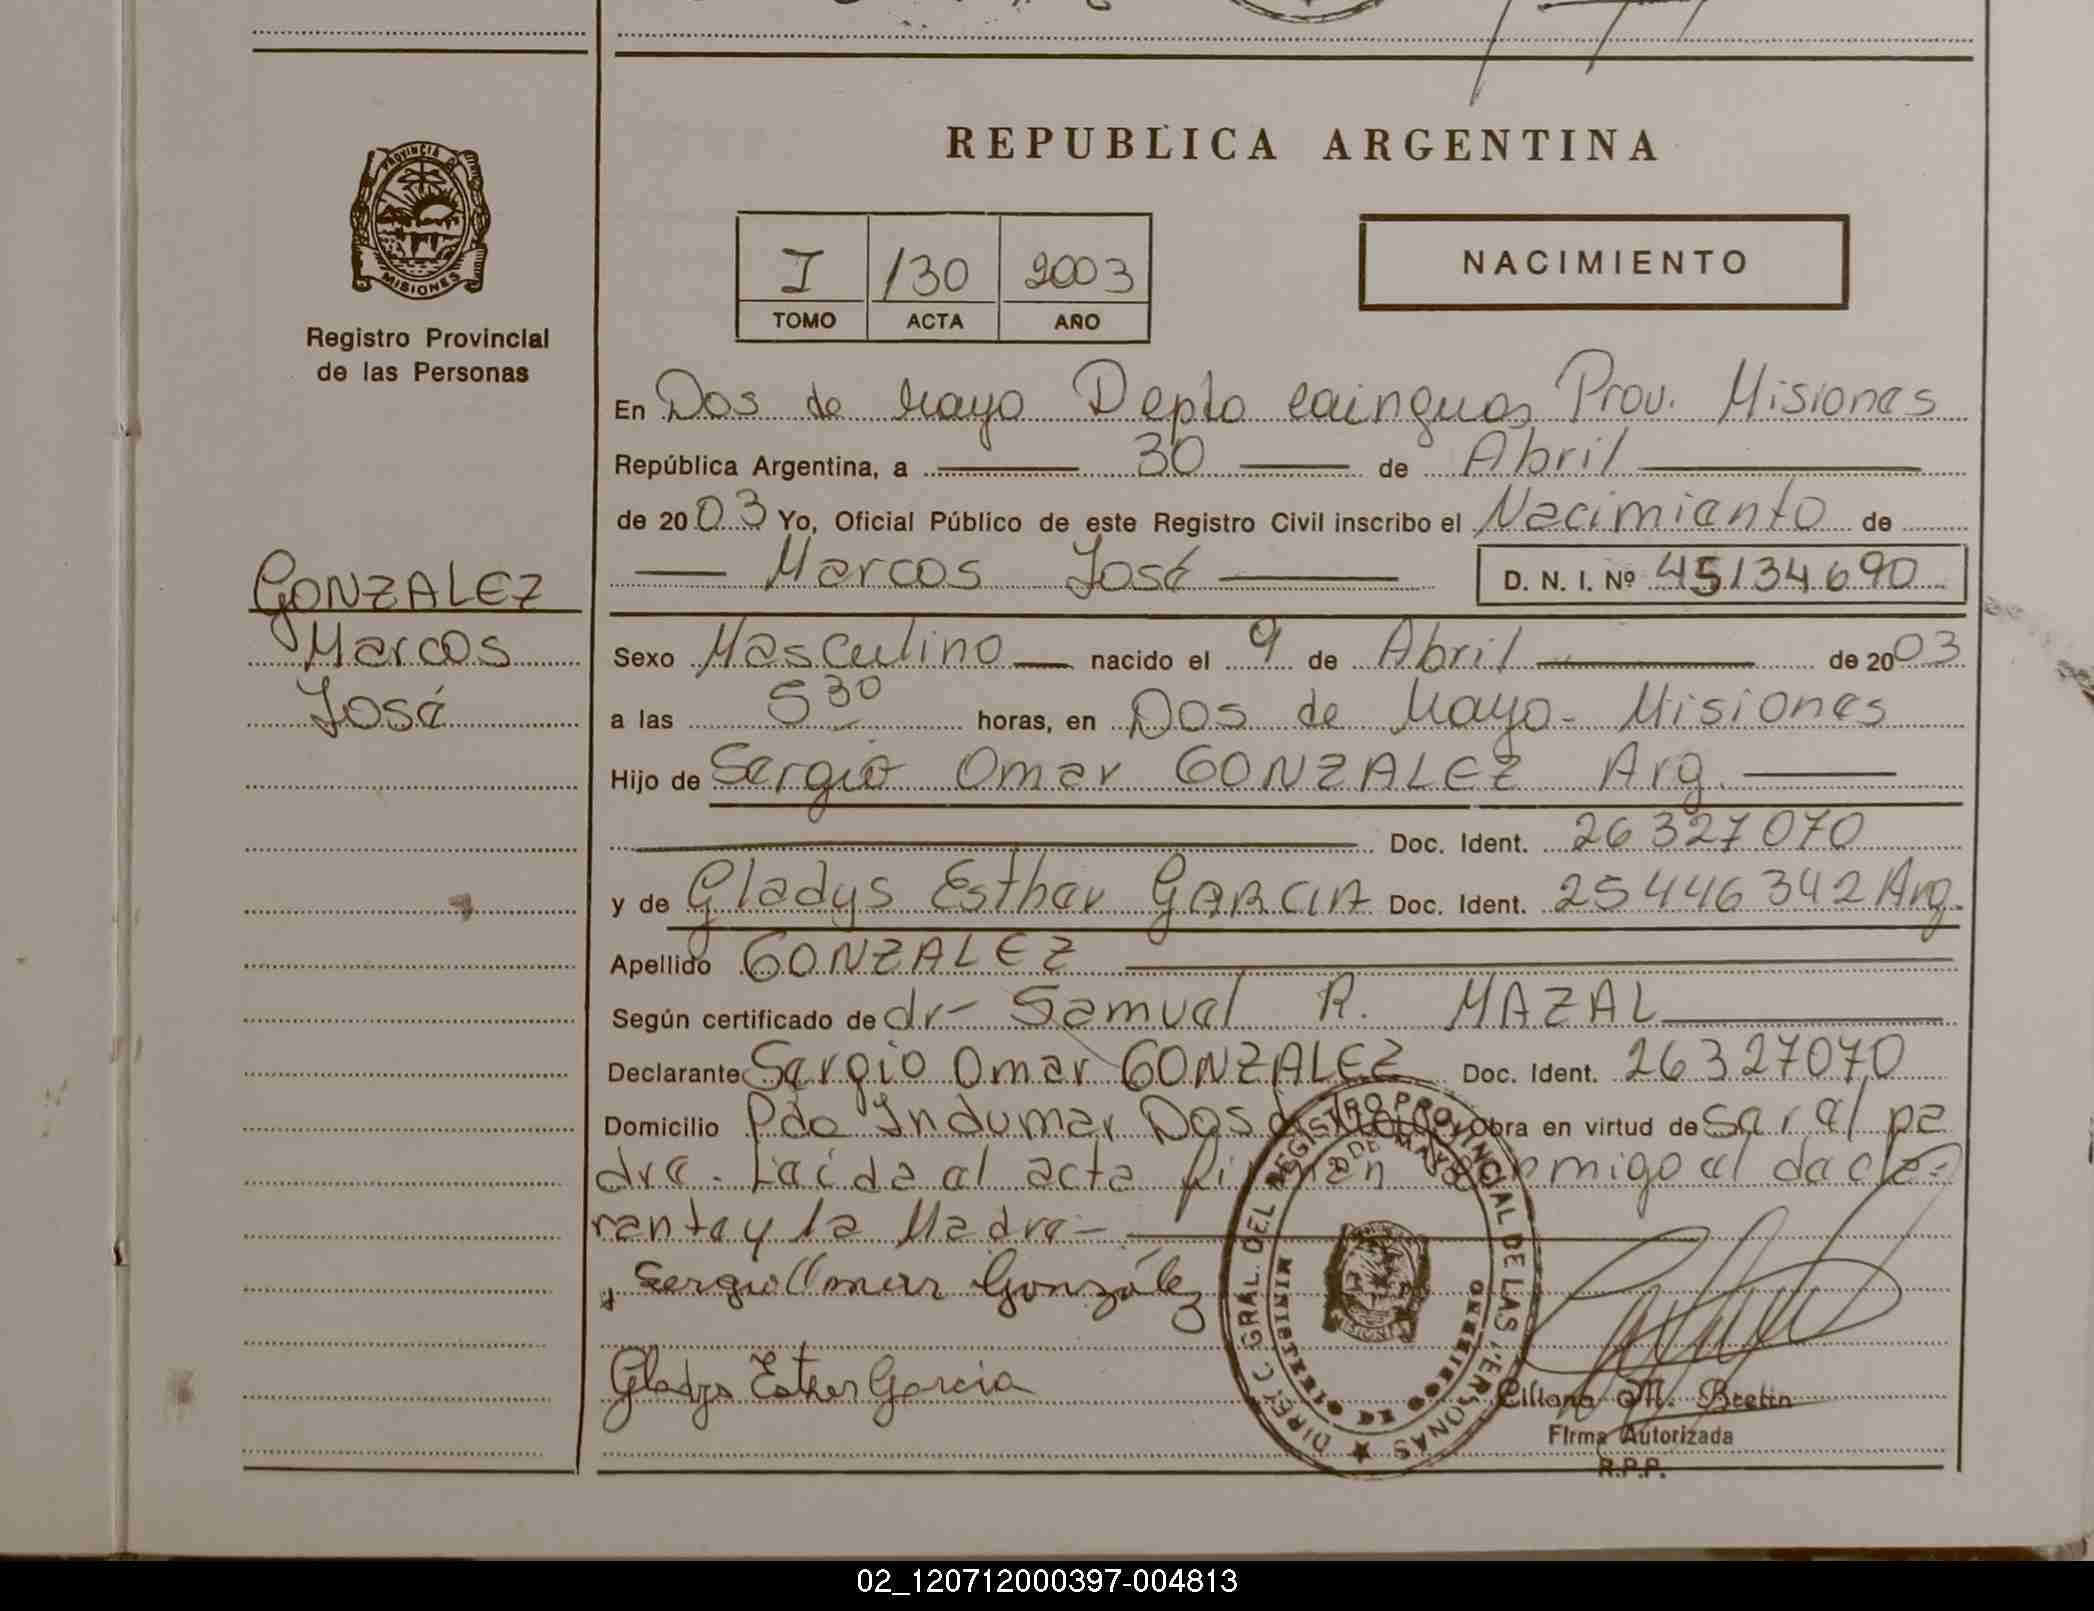 PROVINCIA DE
MISIONES
Registro Provincial
de las Personas
GONZALEZ
Marcos
José
REPUBLICA ARGENTINA
I /30 2003
TOMO ACTA AÑO
NACIMIENTO
En Dos de Mayo Depto Cainguas Prov. Misiones
República Argentina, a 30 de Abril
de 2003 Yo, Oficial Público de este Registro Civil inscribo el Nacimiento de
Marcos José D. N. I. Nº 45134690
Sexo Masculino nacido el 9 de Abril de 2003
a las 5 30 horas, en Dos de Mayo - Misiones
Hijo de Sergio Omar GONZALEZ Arg.
Doc. Ident. 26327070
y de Gladys Esther GARCIA Doc. Ident. 25446342 Arg.
Apellido GONZALEZ
Según certificado de dr- Samuel R. MAZAL
Declarante Sergio Omar GONZALEZ Doc. Ident. 26327070
Domicilio Pdo Indumar Dos de Mayo Obra en virtud de ser el pa
dre. Leída el acta firman conmigo el decla-
rante y la Madre-
Sergio Omar González
Gladys Esther Garcia
DIREC. GRAL. DEL REGISTRO PROVINCIAL DE LAS PERSONAS
2 DE MAYO
MINISTERIO DE GOBIERNO
MISIONES
Liliana M. Bretin
Firma Autorizada
R.P.P.
02_120712000397-004813